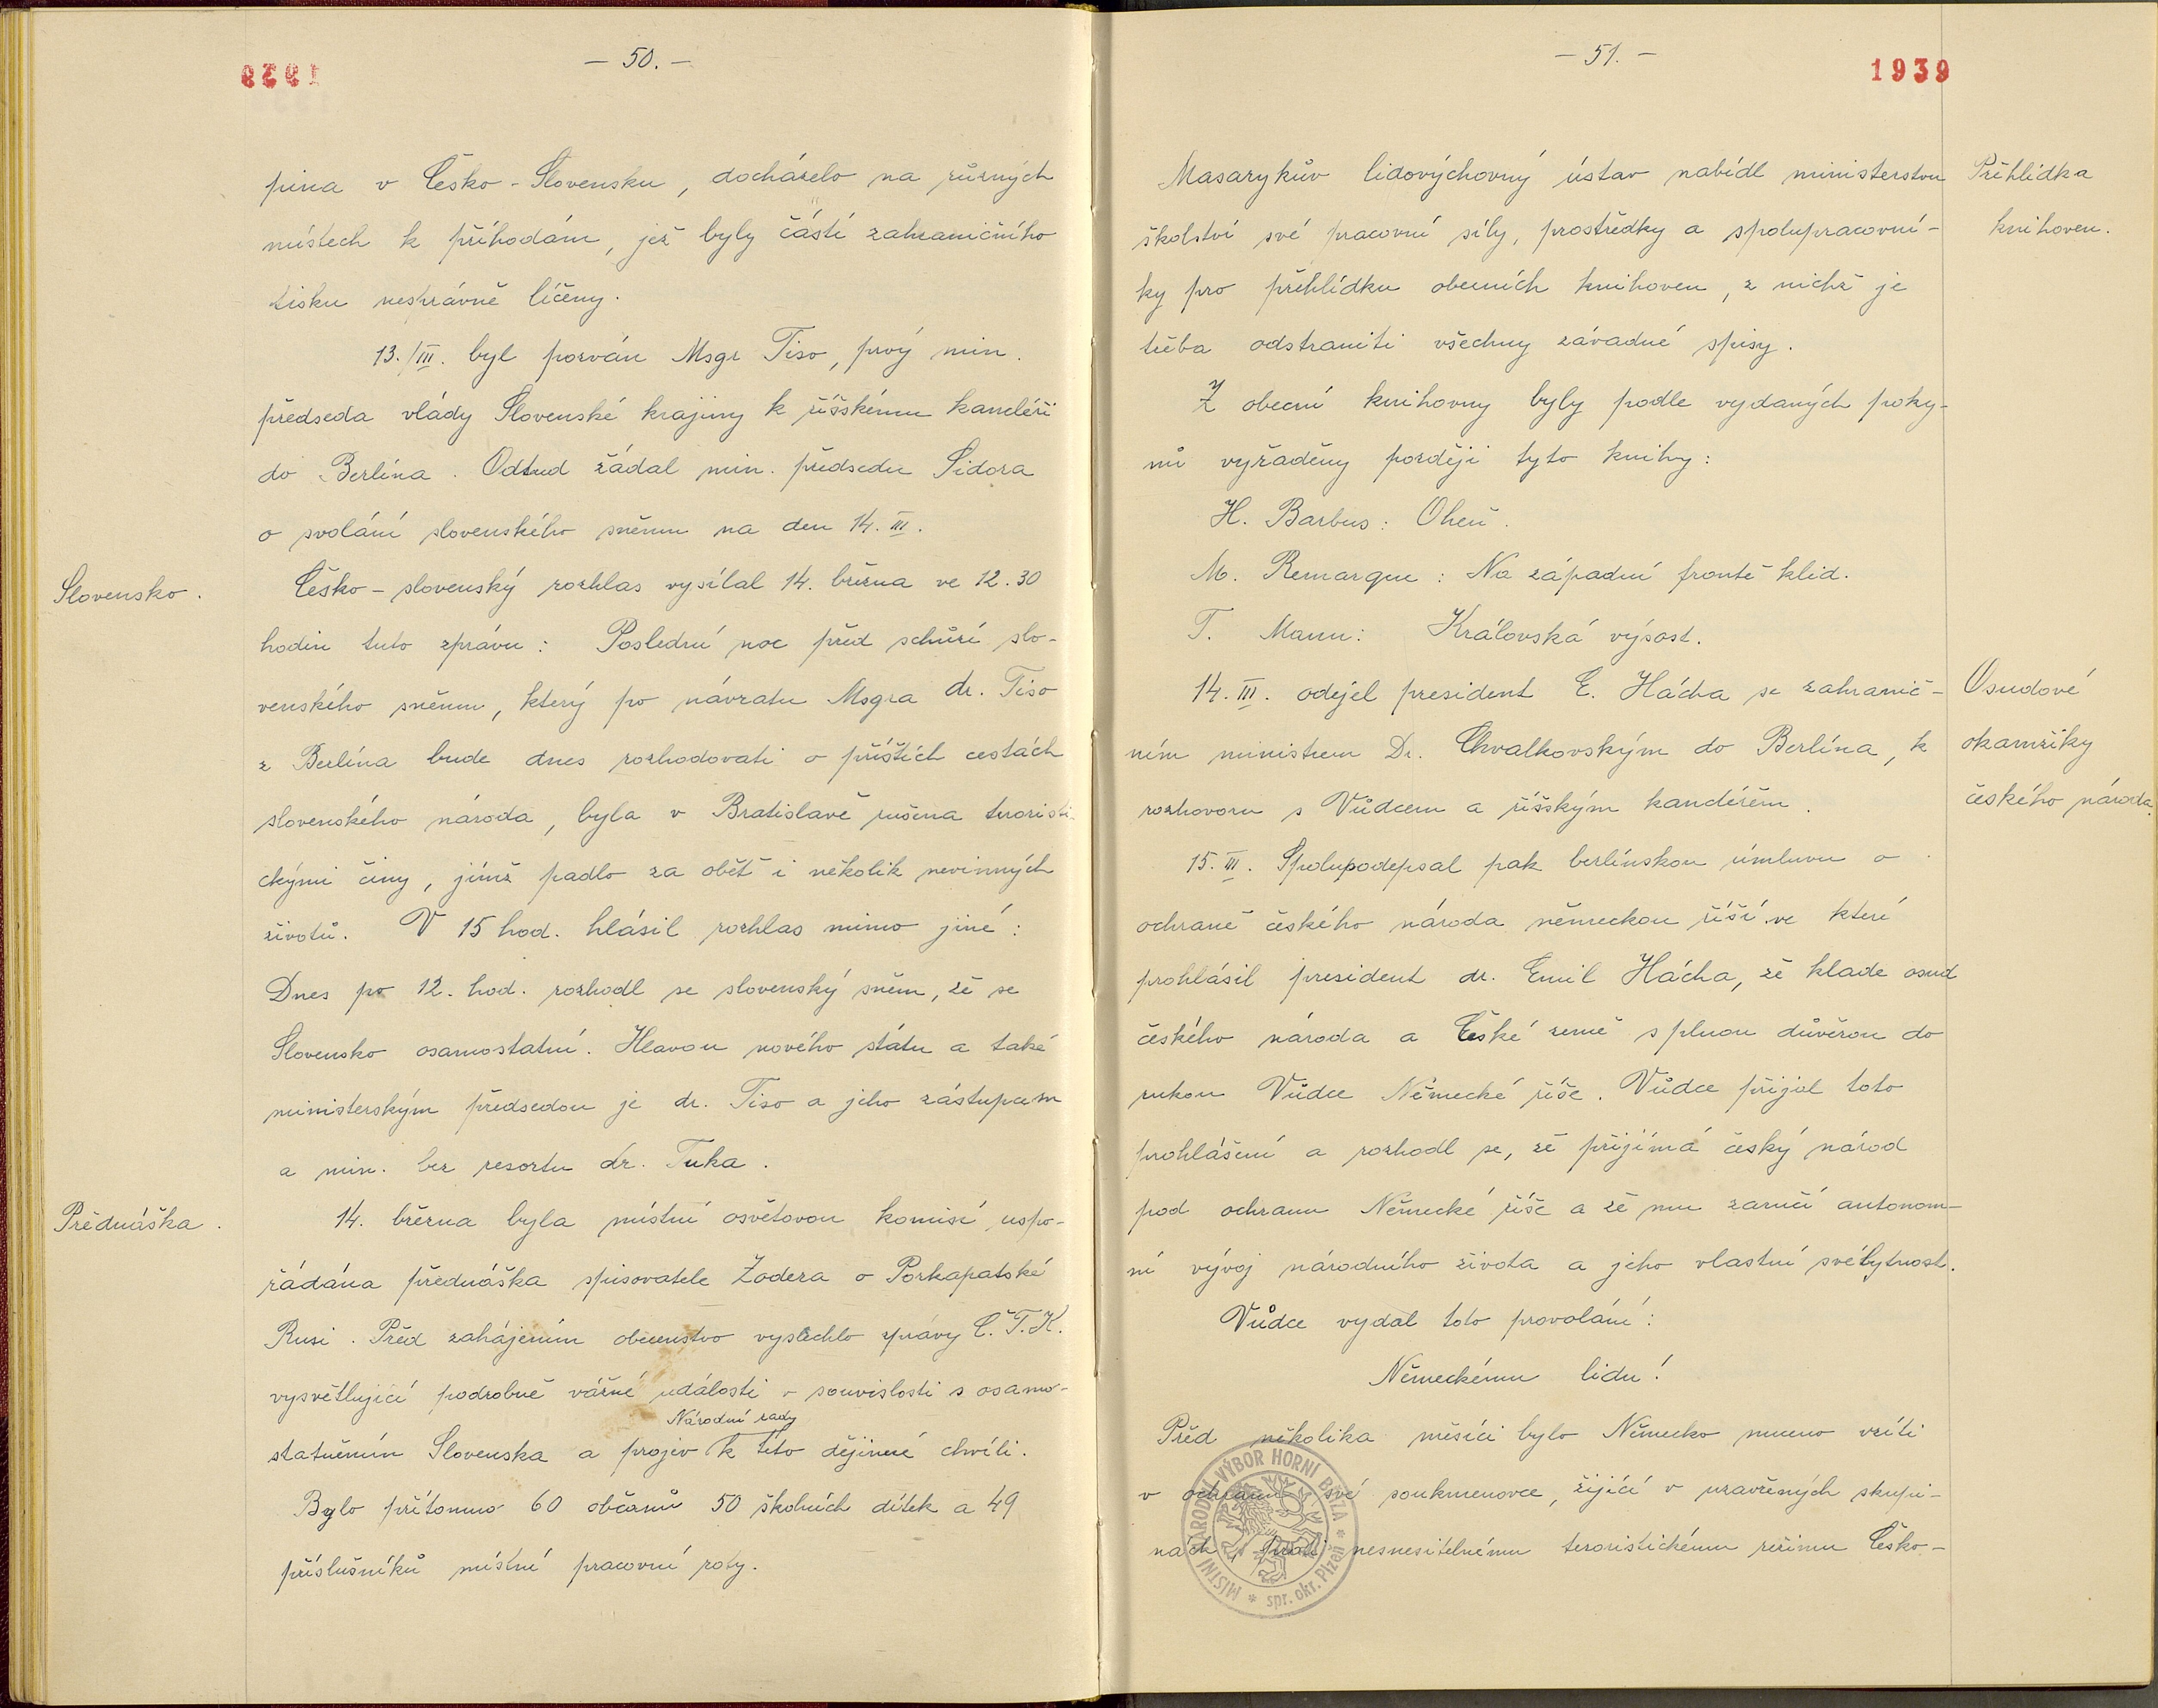 – 50. –
1939
pina v Česko-Slovensku, docházelo na různých
místech k příhodám, jež byly částí zahraničního
tisku nesprávně líčeny.
13./III. byl pozván Msgr Tiso, prvý min.
předseda vlády Slovenské krajiny k říšskému kancléři
do Berlína. Odtud žádal min. předsedu Sidora
o svolání slovenského sněmu na den 14. III.
Slovensko.
Česko-slovenský rozhlas vysílal 14. března ve 12.30
hodin tuto zprávu: Poslední noc před schůzí slo-
venského sněmu, který po návratu Msgra dr. Tiso
z Berlína bude dnes rozhodovati o příštích cestách
slovenského národa, byla v Bratislavě rušena teroristi-
ckými činy, jimž padlo za oběť i několik nevinných
životů. V 15 hod. hlásil rozhlas mimo jiné:
Dnes po 12. hod. rozhodl se slovenský sněm, že se
Slovensko osamostatní. Hlavou nového státu a také
ministerským předsedou je dr. Tiso a jeho zástupcem
a min. bez resortu dr. Tuka.
Přednáška.
14. března byla místní osvětovou komisí uspo-
řádána přednáška spisovatele Zodera o Porkapatské
Rusi. Před zahájením obecenstvo vyslechlo zprávy Č.T.K.
vysvětlující podrobně vážné události v souvislosti s osamo-
statněním Slovenska a projev Národní rady k této dějinné chvíli.
Bylo přítomno 60 občanů 50 školních dítek a 49
příslušníků místní pracovní roty.
– 51. –
1939
Masarykův lidovýchovný ústav nabídl ministerstvu
Přehlídka
školství své pracovní síly, prostředky a spolupracovní-
knihoven.
ky pro přehlídku obecních knihoven, z nichž je
třeba odstraniti všechny závadné spisy.
Z obecní knihovny byly podle vydaných poky-
nů vyřaděny později tyto knihy:
H. Barbus: Oheň.
M. Remarque: Na západní frontě klid.
T. Mann: Královská výsost.
14. III. odejel president E. Hácha se zahranič-
Osudové
ním ministrem Dr. Chvalkovským do Berlína, k
okamžiky
rozhovoru s Vůdcem a říšským kancléřem.
českého národa.
15. III. Spolupodepsal pak berlínskou úmluvu o
ochraně českého národa německou říší ve které
prohlásil president dr. Emil Hácha, že klade osud
českého národa a České země s plnou důvěrou do
rukou Vůdce Německé říše. Vůdce přijal toto
prohlášení a rozhodl se, že přijímá český národ
pod ochranu Německé říše a že mu zaručí autonom-
ní vývoj národního života a jeho vlastní svébytnost.
Vůdce vydal toto provolání:
Německému lidu!
Před několika měsíci bylo Německo nuceno vzíti
v ochranu své soukmenovce, žijící v uzavřených skupi-
nách, proti nesnesitelnému teroristickému režimu Česko-
MÍSTNÍ NÁRODNÍ VÝBOR HORNÍ BŘÍZA * spr. okr. Plzeň *